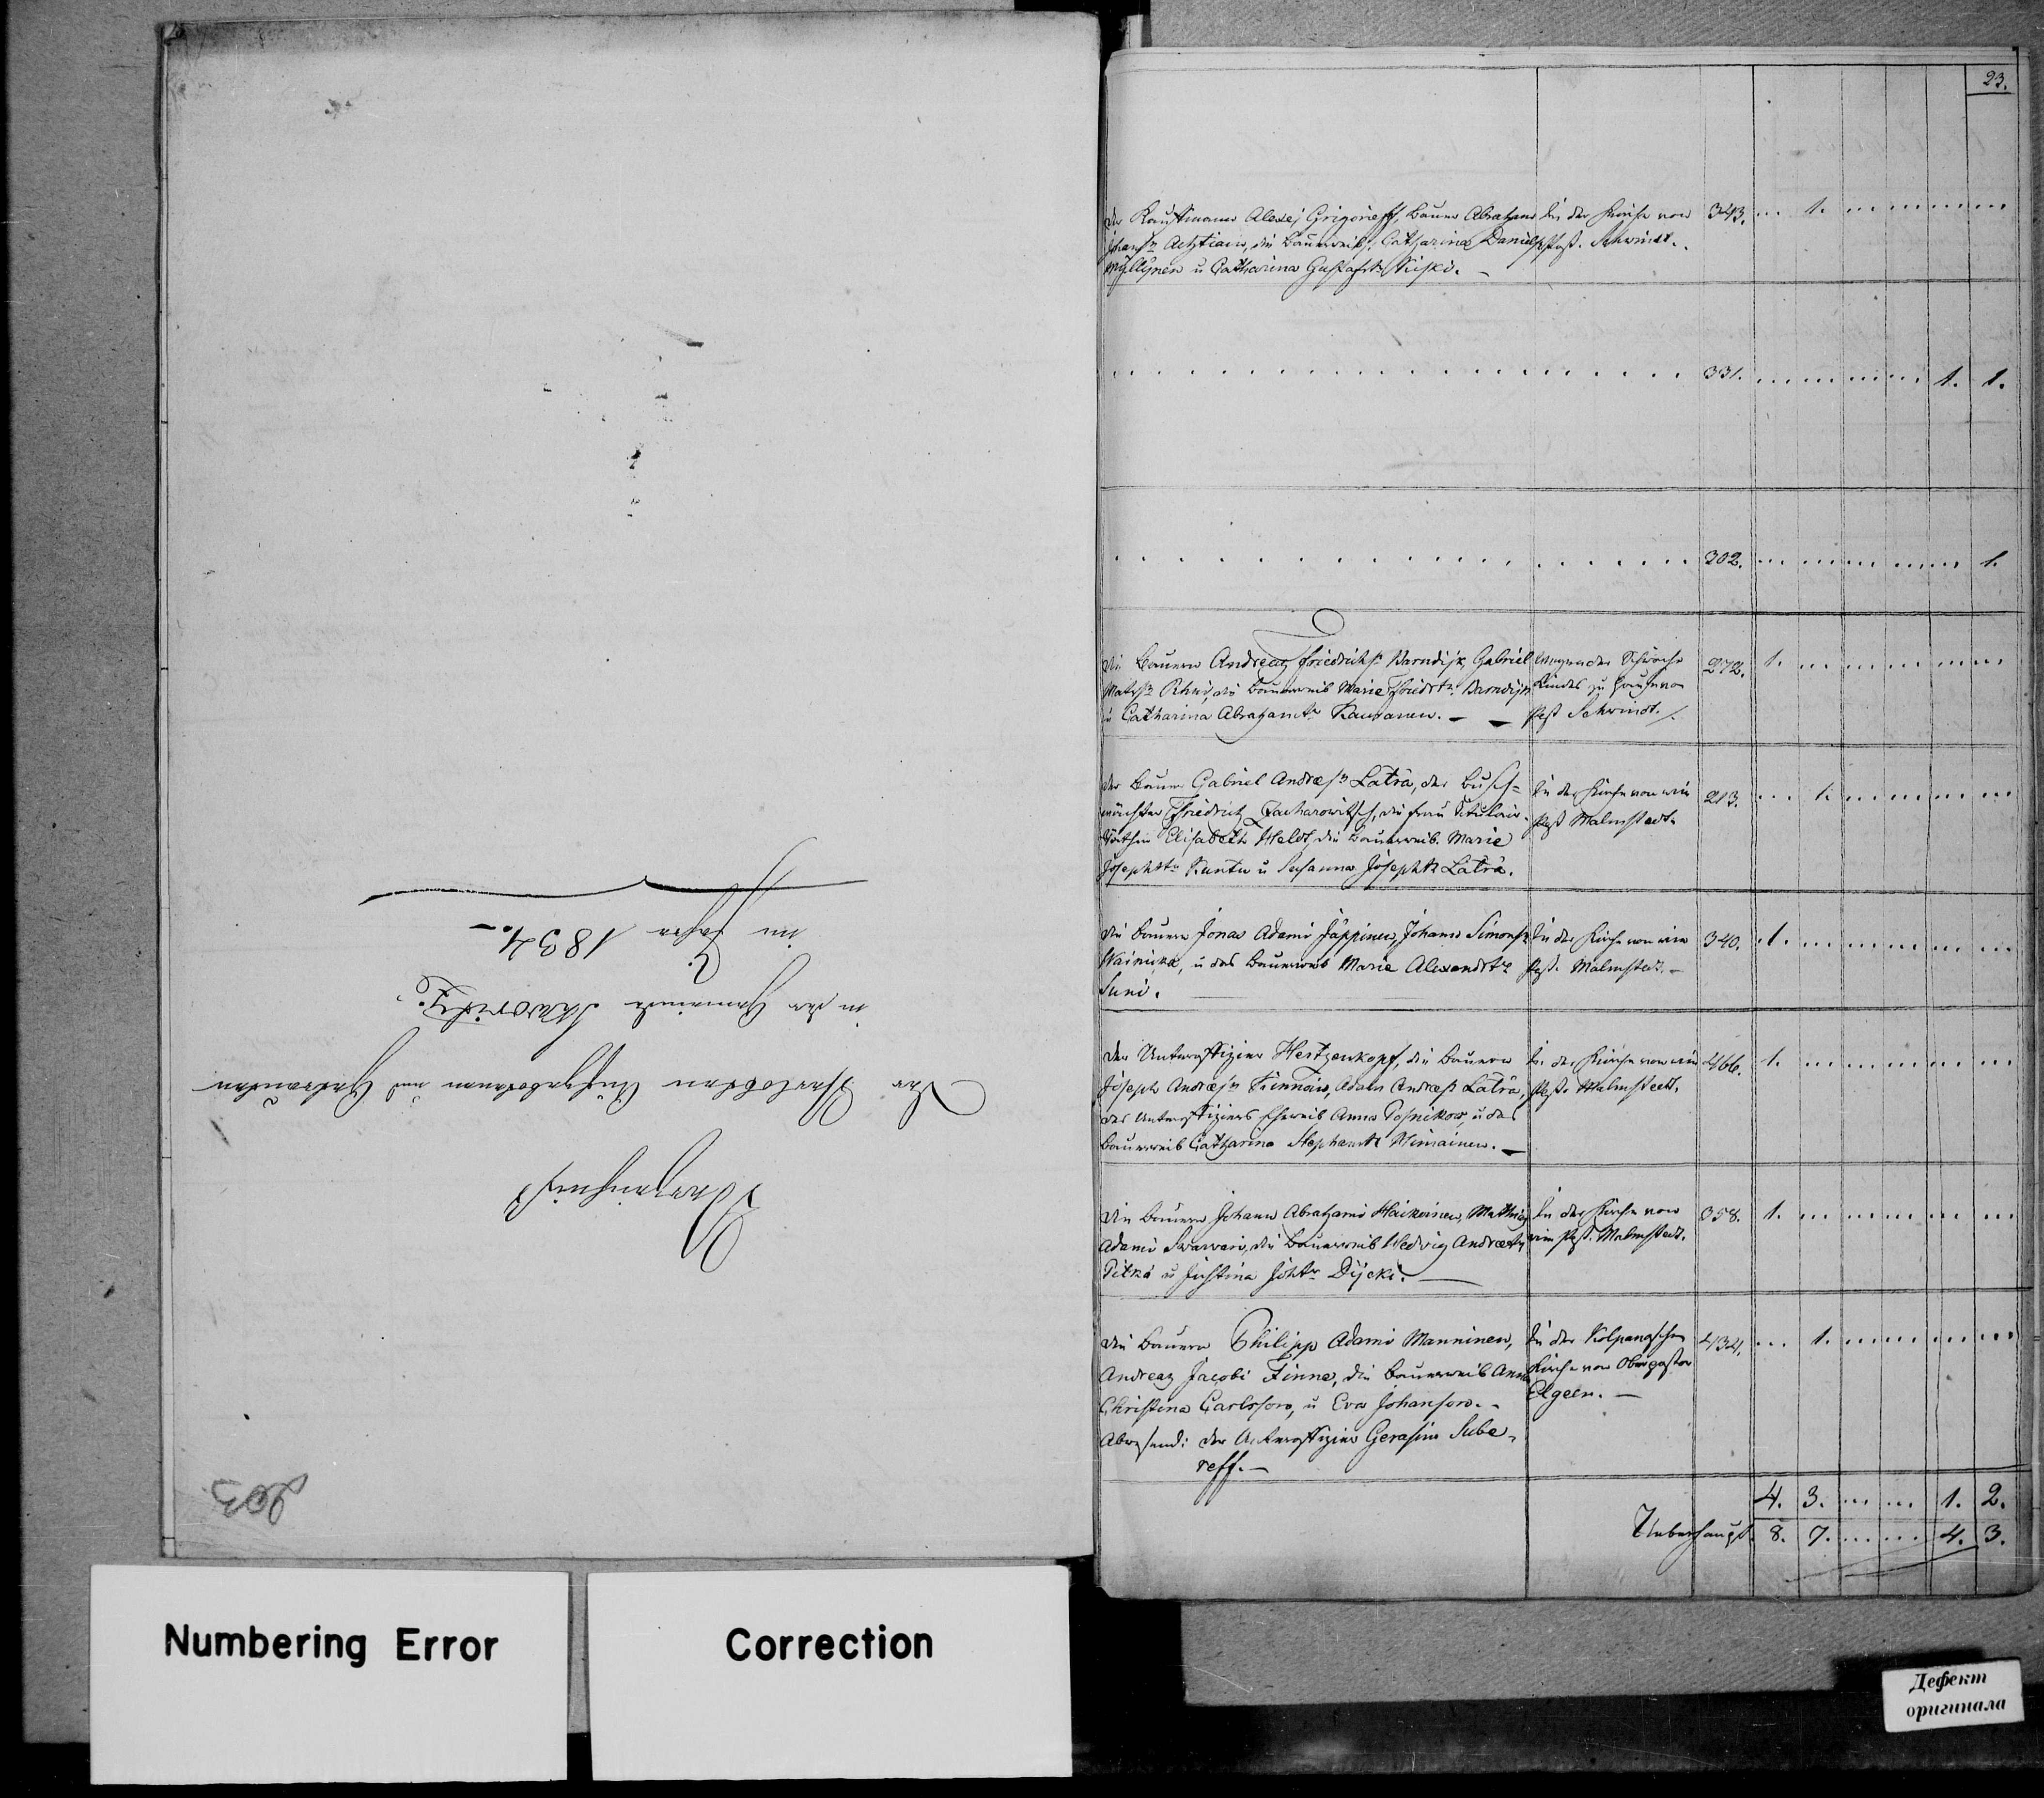 Verzeichniß
der Verlobten Aufgebotenen und Getrauten
in der Gemeinde Skworitz
im Jahre 1834.
203
23.
Der Kaufmann Alexej Grigorieff, Bauer Abraham
Johanss. die Bauerweib. Catharina Daniels
Myllynen u Catharina Gustafstr Kiski.
In der Kirche von
Past. Schwindt.
343. 1.
331. 1. 1.
302. 1.
Die Bauern Andreas Friedrichss. Varndijk, Gabriel
Matss. die Bauerweib Marie Friedrtr. Varndijk
u Catharina Abrahamtr. Kauranen.
Wegen der Schwäche
Kindes zu Hause von
Past Schwindt.
272. 1.
Der Bauer Gabriel Andreß Latra, der Busch=
wächter Friedrich Zacharowitsch, die Frau Titulair
Räthin Elisabeth Heldt, die Bauerweib. Marie
Josephstr. Kuntu u Susanna Josephtr Latra.
In der Kirche von mir
Past Malmstedt
213. 1.
Die Bauern Jonas Adami Jäppinen, Johann Simonss.
Wainikka, u das Bauerweib Marie Alexandtr
Suni.
In der Kirche von mir
Past. Malmstedt.
340. 1.
Der Unteroffizier Hertzenkopf, die Bauern
Joseph Andreß Kinnain, Adam Andreß Latra,
des Unteroffiziers Eheweib Anna Posnikow, u das
Bauerweib Catharina Stephantr Himainen.
In der Kirche von mir
Past. Malmstedt.
466. 1.
Die Bauern Johann Abrahami Haikoinen, Mathias
Adami Swarvari, die Bauerweib Hedwig Andreætr
Pitkä u Justina Johtr Dijcki.
In der Kirche von
mir Past. Malmstedt.
358. 1.
Die Bauern Philipp Adami Manninen,
Andreas Jacobi Finne, die Bauerweib Anna
Christina Carlsson, u Eva Johanson.
Abwesend: der Unteroffizier Gerasim Sube-
reff.
In der Kolpangschen
Kirche von Oberpastor
Elgeen.
434. 1.
4. 3. 1. 2.
Ueberhaupt 8. 7. 4. 3.
Numbering Error
Correction
Дефект
оригинала